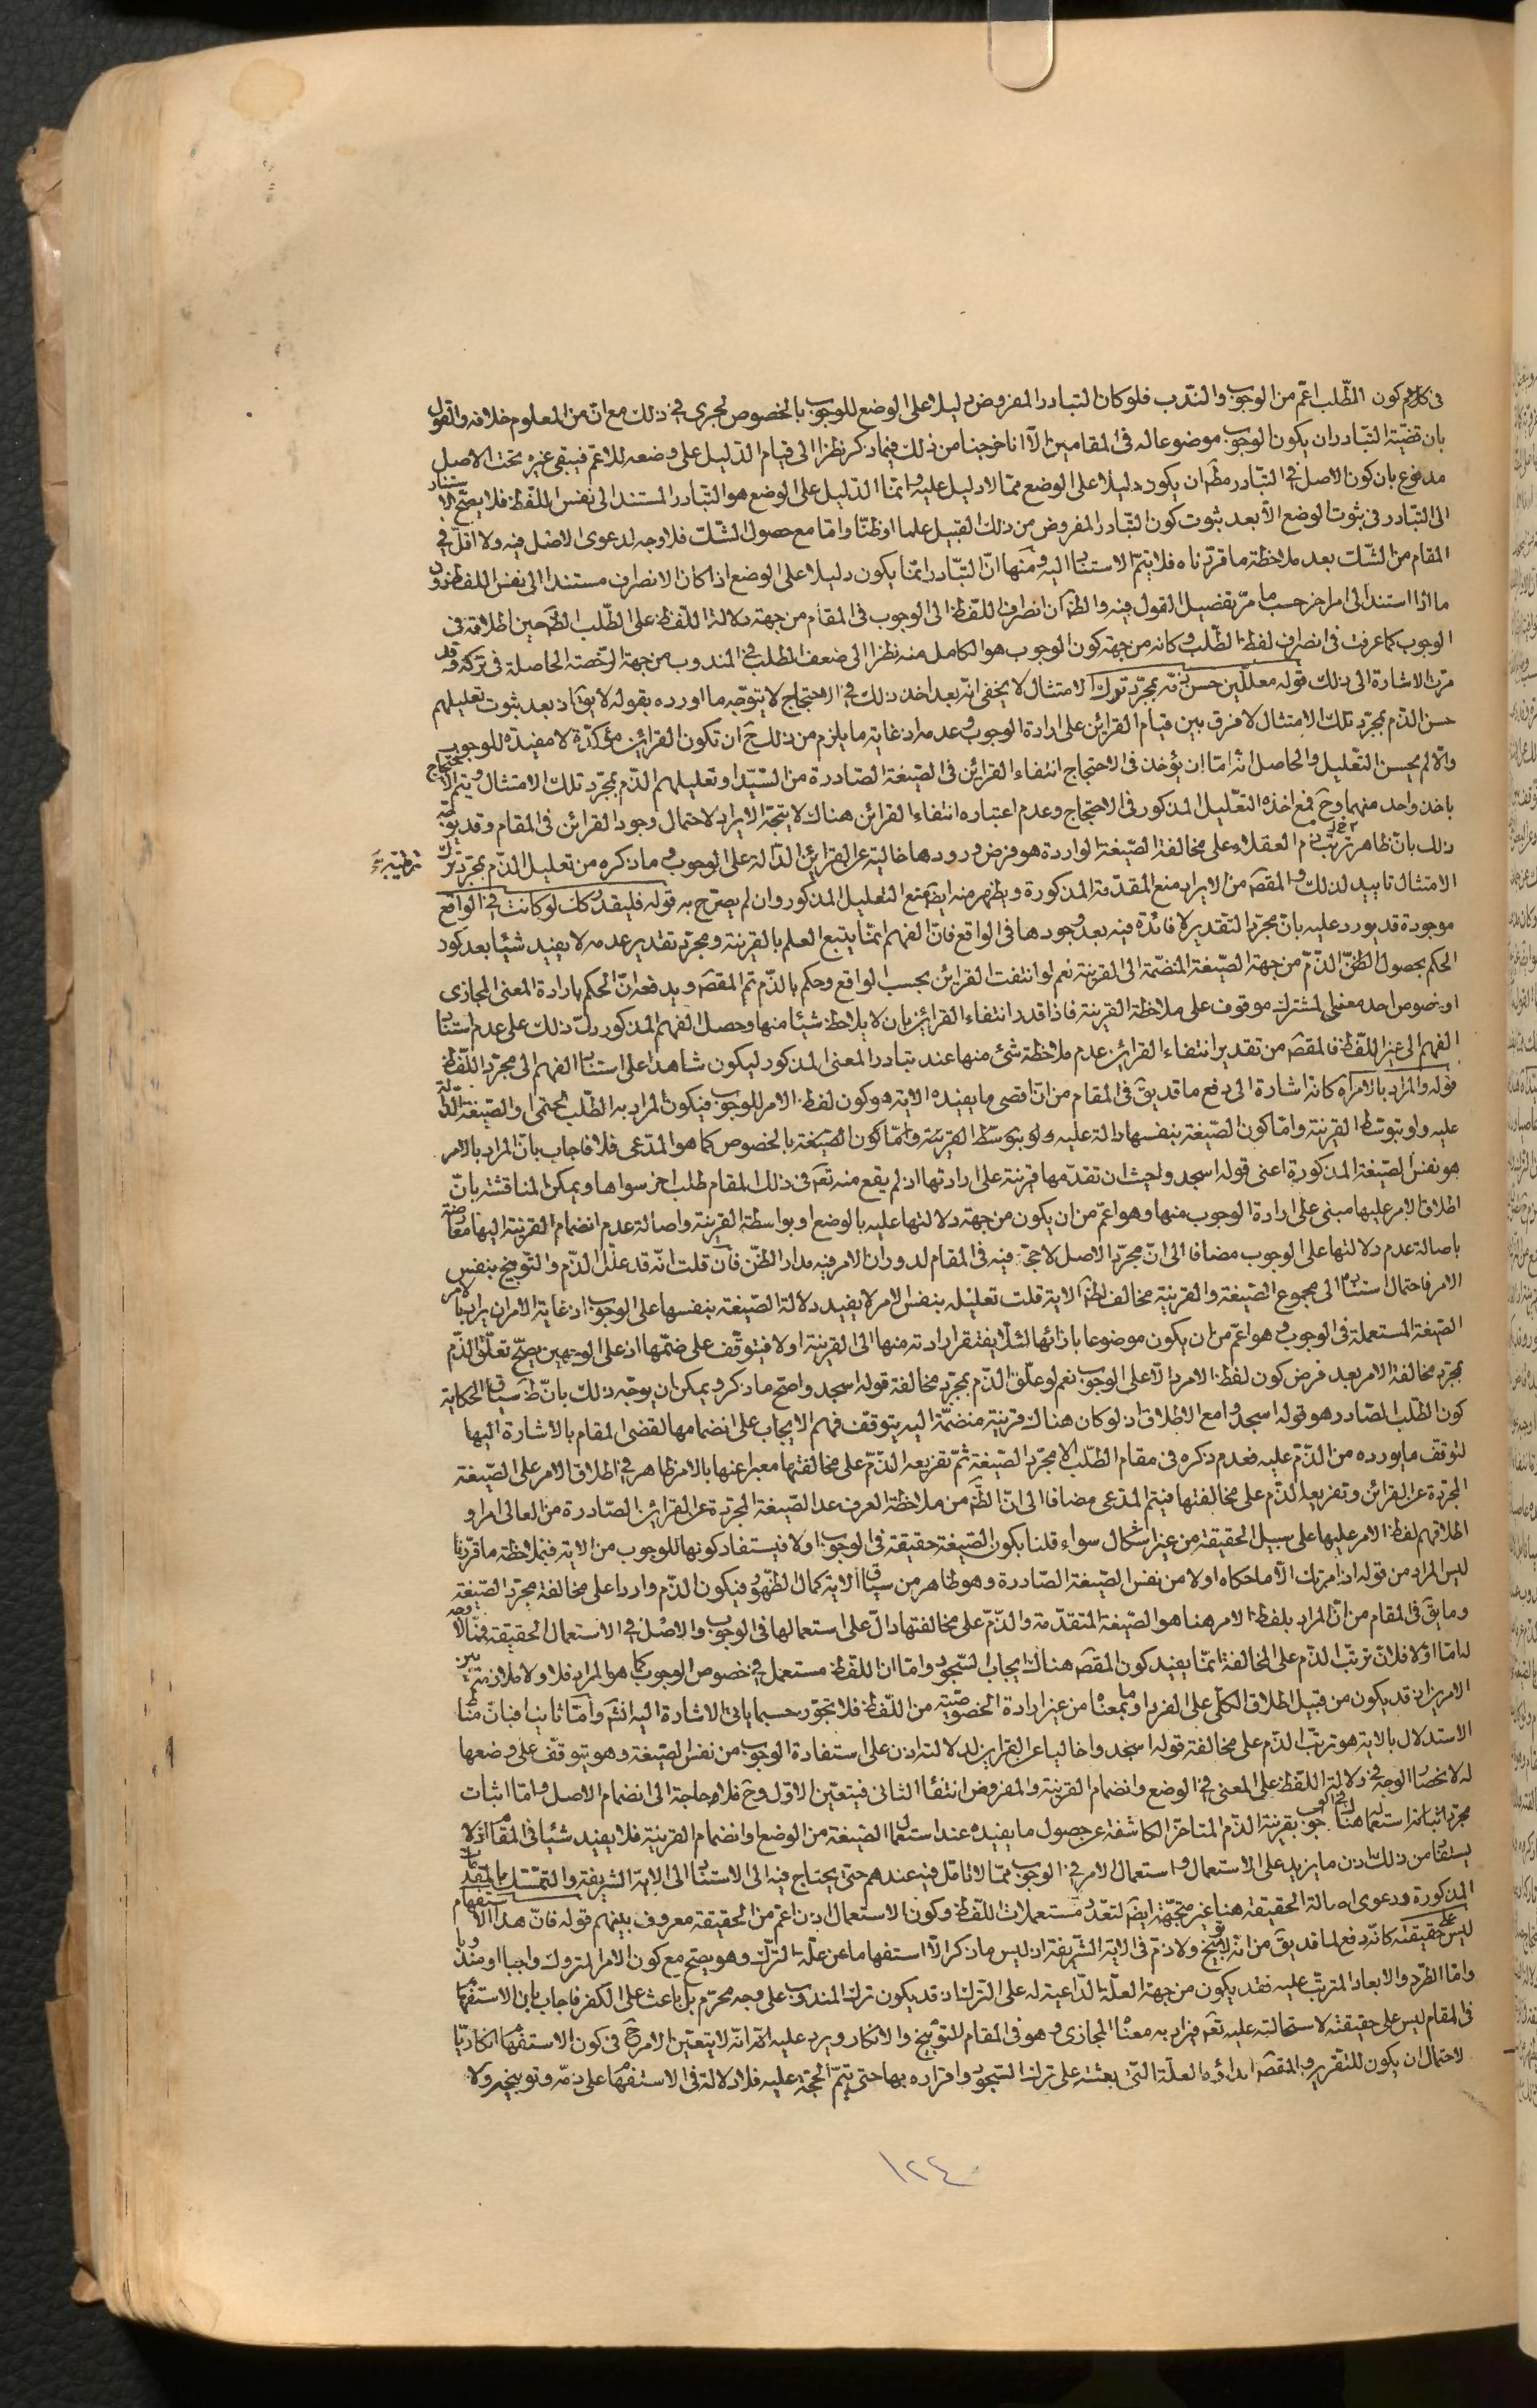 في كلامهم كون الطّلب اعمّ من الوجوب والندب فلو كان التبادر المفروض دليلا على الوضع للوجوب بالخصوص لجرى في ذلك مع انّ من المعلوم خلافه والقول
بان قضيّة التبادر ان يكون الوجوب موضوعا له في المقامين الّا انا خرجنا من ذلك فيما ذكر نظرا الى قيام الدّليل على وضعه للاعمّ فيبقى غيره تحت الاصل
مدفوع بان كون الاصل في التبادر مطَم ان يكون دليلا على الوضع ممّا لا دليل عليه وانّما الدّليل على الوضع هو التبادر المستند الى نفس اللفظ فلا يصحّ الاستناد
الى التبادر في ثبوت الوضع الّا بعد ثبوت كون التبادر المفروض من ذلك القبيل علما او ظنّا وامّا مع حصول الشّك فلا وجه لدعوى الاصل فيه ولا اقلّ في
المقام من الشّك بعد ملاحظة ما قرّرناه فلا يتمّ الاستناد اليه ومنها انّ التبادر انّما يكون دليلا على الوضع اذا كان الانصراف مستندا الى نفس اللفظ دون
ما اذا استند الى امر اخر حسب ما مرّ تفصيل القول فيه والظَ ان انصراف اللّفظ الى الوجوب في المقام من جهة دلالة اللّفظ على الطّلب الظَ حين اطلاقه في
الوجوب كما عرفت في انصراف لفظ الطّلب وكانه من جهة كون الوجوب هو الكامل منه نظرا الى ضعف الطلب في المندوب من جهة الرّخصة الحاصلة في تركه وقد
مرّت الاشارة الى ذلك قوله معلّلين حسن ذمّه بمجرّد ترك الامتثال لا يخفى انّه بعد اخذ ذلك في الاحتجاج لا يتوجّه ما اورده بقوله لا يق اذ بعد ثبوت تعليلهم
حسن الذّم بمجرّد ترك الامتثال لا فرق بين قيام القرائن على ارادة الوجوب وعدمه اذ غاية ما يلزم من ذلك ح ان تكون القرائن مؤكّدة لا مفيدة للوجوب
والّا لم يحسن التّعليل والحاصل انّه امّا ان يؤخذ في الاحتجاج انتفاء القرائن في الصّيغة الصّادرة من السّيد او تعليلهم الذّم بمجرّد ترك الامتثال ويتم الاحتجاج
باخذ واحد منهما وح فمع اخذه التّعليل المذكور في الاحتجاج وعدم اعتباره انتفاء القرائن هناك لا يتجه الايراد لاحتمال وجود القرائن في المقام وقد يوجّه
ذلك بانّ ظاهر ترتب ذم العقلاء على مخالفة الصّيغة الواردة هو فرض ورودها خالية عن القرائن الدّالة على الوجوب وما ذكره من تعليل الذّم بمجرّد ترك
الامتثال تاييد لذلك والمقصَ من الايراد منع المقدّمة المذكورة ويظهر منه ايضَ منع التعليل المذكور وان لم يصرّح به قوله فليقدّر كك لو كانت في الواقع
موجودة قد يورد عليه بانّ مجرّد التقدير لا فائدة فيه بعد وجودها في الواقع فانّ الفهم انّما يتبع العلم بالقرينة ومجرّد تقدير عدمه لا يفيد شيئا بعد كون
الحكم بحصول الظنّ الذّمّ من جهة الصّيغة المنضمّة الى القرينة نعم لو انتفت القرائن بحسب الواقع وحكم بالذّم تمّ المقصَ ويدفعه انّ الحكم بارادة المعنى المجازى
او خصوص احد معنى المشترك موقوف على ملاحظة القرينة فاذا قدر انتفاء القرائن بان لا يلاحظ شيئا منها وحصل الفهم المذكور دلّ ذلك على عدم استناد
الفهم الى غير اللّفظ فالمقصَ من تقدير انتفاء القرائن عدم ملاحظة شئ منها عند تبادر المعنى المذكور ليكون شاهدا على استناد الفهم الى مجرّد اللّفظ
قوله والمراد بالامر آه كانه اشارة الى دفع ما قد يقَ في المقام من انّ اقصى ما يفيده الاية هو كون لفظ الامر للوجوب فيكون المراد به الطّلب الحتمى والصّيغة الدّالة
عليه ولو بتوسّط القرينة وامّا كون الصّيغة بنفسها دالة عليه ولو بتوسّط القرينة وامّا كون الصّيغة بالخصوص كما هو المدّعى فلا فاجاب بانّ المراد بالامر
هو نفس الصّيغة المذكورة اعنى قوله اسجدوا حيث ان تقدّمها قرينة على ارادتها اذ لم يقع منه تعَ في ذلك المقام طلب اخر سواها ويمكن المناقشة بانّ
اطلاق الامر عليها مبنى على ارادة الوجوب منها وهو اعمّ من ان يكون من جهة دلالتها عليه بالوضع او بواسطة القرينة واصالة عدم انضمام القرينة اليها معارضة
باصالة عدم دلالتها على الوجوب مضافا الى انّ مجرّد الاصل لا حجّ فيه في المقام لدوران الامر فيه مدار الظنّ فان قلت انّه قد علّل الذّم والتّوبيخ بنفس
الامر فاحتمال استناده الى مجموع الصّيغة والقرينة مخالف لظَ الاية قلت تعليله بنفس الامر لا يفيد دلالة الصّيغة بنفسها على الوجوب اذ غاية الامر ان يراد بالامر
الصّيغة المستعملة في الوجوب وهو اعمّ من ان يكون موضوعا بازائها لئلّا يفتقر ارادته منها الى القرينة او لا فيتوقّف على ضمّها اذ على الوجهين يصحّ تعلّق الذّم
بمجرّد مخالفة الامر بعد فرض كون لفظ الامر دالّا على الوجوب نعم لو علّق الذّم بمجرّد مخالفة قوله اسجدوا صحّ ما ذكر ويمكن ان يوجّه ذلك بانّ ظَ سياق الحكاية
كون الطّلب الصّادر هو قوله اسجدوا مع الاطلاق اذ لو كان هناك قرينة منضمّة اليه يتوقف فهم الايجاب على انضمامها لقضى المقام بالاشارة اليها
لتوقّف ما يورده من الذّمّ عليه فعدم ذكره في مقام الطّلب الا مجرّد الصّيغة ثمّ تفريعه الذّمّ على مخالفتها معبرا عنها بالامر ظاهر في اطلاق الامر على الصّيغة
المجرّدة عن القرائن وتفريع الذّم على مخالفتها فيتم المدّعى مضافا الى انّ الظَ من ملاحظة العرف عد الصّيغة المجرّدة عن القرائن الصّادرة من العالى امرا و
اطلاقهم لفظ الامر عليها على سبيل الحقيقة من غير اشكال سواء قلنا بكون الصّيغة حقيقة في الوجوب او لا فيستفاد كونها للوجوب من الاية فبملاحظة ما قرّرنا
ليس المراد من قوله اذ امرتك الّا ما حكاه اولا من نفس الصّيغة الصّادرة وهو ظاهر من سياق الاية كمال الظّهور فيكون الذّم واردا على مخالفة مجرّد الصّيغة
وما يقَ في المقام من انّ المراد بلفظ الامر هنا هو الصّيغة المتقدّمة والذّمّ على مخالفتها دالّ على استعمالها في الوجوب والاصل في الاستعمال الحقيقة فممّا لا وجه
له امّا اوّلا فلانّ ترتّب الذّم على المخالفة انّما يفيد كون المقصَ هناك ايجاب السّجود وامّا ان اللّفظ مستعمل في خصوص الوجوب كما هو المراد فلا ولا ملازمة بين
الامرين اذ قد يكون من قبيل اطلاق الكلّى على الفرد او ما بمعناه من غير ارادة الخصوصيّة من اللّفظ فلا تجوّز حسبما ياتى الاشارة اليه انشَ وامّا ثانيا فبانّ منّا
الاستدلال بالاية هو ترتب الذّم على مخالفة قوله اسجدوا خاليا عن القراين لدلالته اذن على استفادة الوجوب من نفس الصّيغة وهو يتوقّف على وضعها
له لانحصار الوجه في دلالة اللّفظ على المعنى في الوضع وانضمام القرينة والمفروض انتفاء الثانى فيتعيّن الاوّل وح فلا حاجة الى انضمام الاصل وامّا اثبات
مجرّد استعمالها هنا في الوجوب بقرينة الذّم المتاخّر الكاشفة عن حصول ما يفيده عند استعمال الصّيغة من الوضع او انضمام القرينة فلا يفيد شيئا في المقام اذ لا
يستفاد من ذلك اذن ما يزيد على الاستعمال واستعمال الامر في الوجوب ممّا لا تامّل فيه عندهم حتّى يحتاج فيه الى الاستناد الى الاية الشّريفة والتمسّك بالمقدمات
المذكورة ودعوى اصالة الحقيقة هنا غير متّجهة ايضَ لتعدّد مستعملات اللّفظ وكون الاستعمال اذن اعمّ من الحقيقة معروف بينهم قوله فانّ هذا الاستفهام
ليس على حقيقته كانّه دفع لما قد يقَ من انّه لا توبيخ ولا ذمّ في الاية الشّريفة اذ ليس ما ذكر الّا استفهاما عن علّة التّرك وهو يصحّ مع كون الامر المتروك واجبا او مندوبا
وامّا الطّرد والابعاد المترتّب عليه فقد يكون من جهة العلّة الدّاعية له على التّرك اذ قد يكون ترك المندوب على وجه محرّم بل باعث على الكفر فاجاب بان الاستفهام
في المقام ليس على حقيقته لاستحالته عليه تعَ فيراد به معناه المجازى وهو في المقام للتّوبيخ والانكار ويرد عليه انّه لا يتعيّن الامر ح في كون الاستفهام انكاريّا
لاحتمال ان يكون للتقرير والمقصَ ابداؤه العلّة التى بعثته على ترك السّجود واقراره بها حتى يتمّ الحجّة عليه فلا دلالة في الاستفهام على ذمّه وتوبيخه ولا
١٢٤